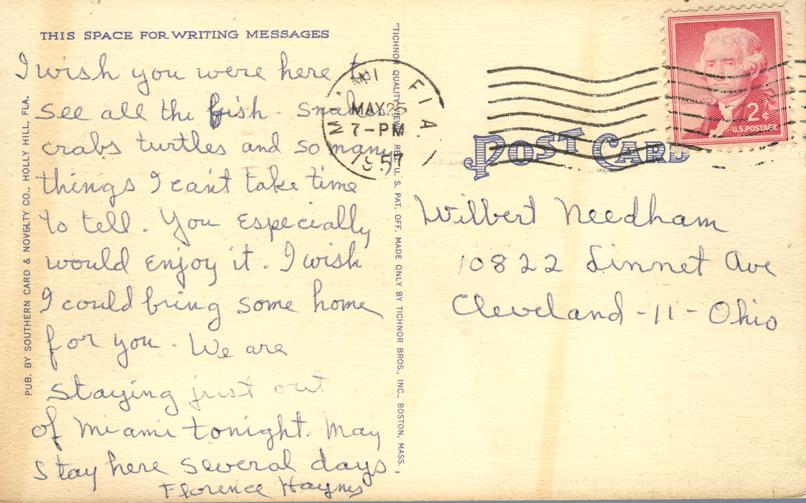 THIS SPACE FOR WRITING MESSAGES
I wish you were here to
see all the fish. Snakes
crabs turtles and so many
things I can't take time
to tell. You especially
would enjoy it. I wish
I could bring some home
for you. We are
staying just out
of Miami tonight. May
stay here several days.
Florence Haynes
PUB. BY SOUTHERN CARD & NOVELTY CO., HOLLY HILL, FLA.
"TICHNOR QUALITY VIEWS," REG. U. S. PAT. OFF. MADE ONLY BY TICHNOR BROS., INC., BOSTON, MASS.
MIAMI FLA.
MAY 25
7-PM
1957
2¢
U.S. POSTAGE
POST CARD
Wilbert Needham
10822 Linnet Ave
Cleveland-11-Ohio